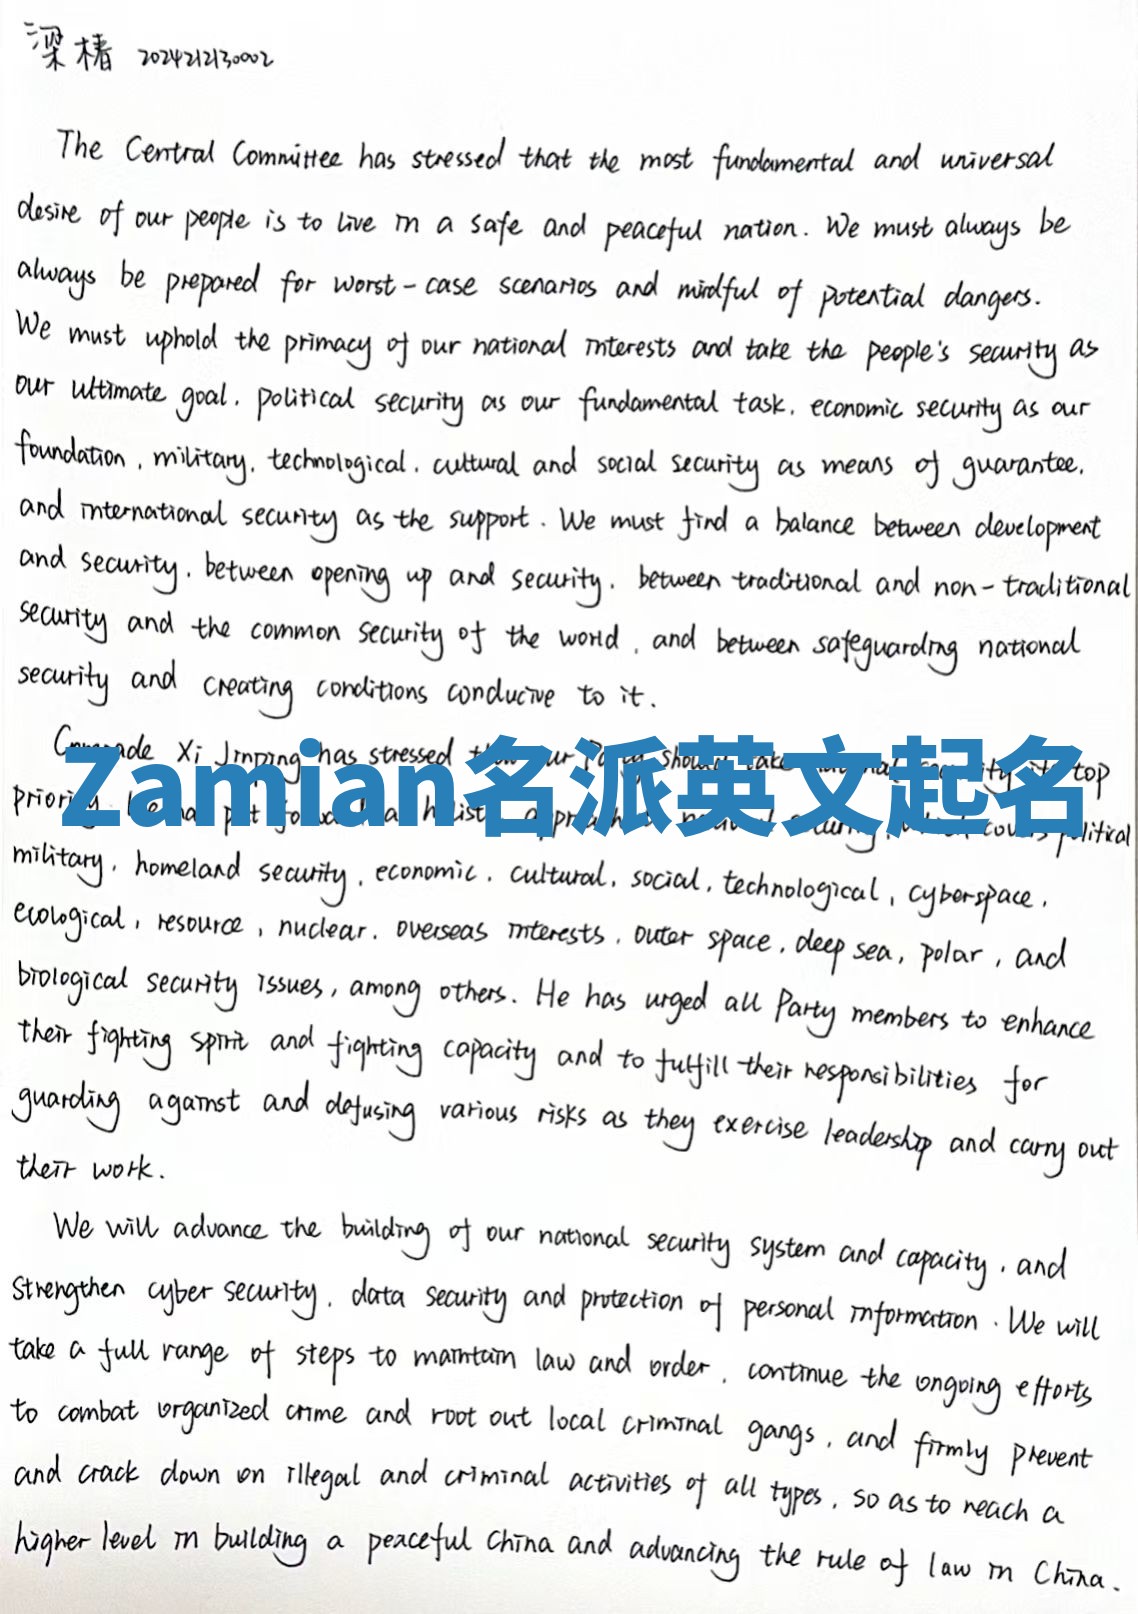 梁椿 2024212130002
The Central Committee has stressed that the most fundamental and universal
desire of our people is to live in a safe and peaceful nation. We must always be
always be prepared for worst-case scenarios and mindful of potential dangers.
We must uphold the primacy of our national interests and take the people's security as
our ultimate goal, political security as our fundamental task, economic security as our
foundation, military, technological, cultural and social security as means of guarantee,
and international security as the support. We must find a balance between development
and security, between opening up and security, between traditional and non-traditional
security and the common security of the world, and between safeguarding national
security and creating conditions conducive to it.
Xi Jinping has stressed top
Zamian名派英文起名
political
military, homeland security, economic, cultural, social, technological, cyberspace,
ecological, resource, nuclear, overseas interests, outer space, deep sea, polar, and
biological security issues, among others. He has urged all Party members to enhance
their fighting spirit and fighting capacity and to fulfill their responsibilities for
guarding against and defusing various risks as they exercise leadership and carry out
their work.
We will advance the building of our national security system and capacity, and
strengthen cyber security, data security and protection of personal information. We will
take a full range of steps to maintain law and order, continue the ongoing efforts
to combat organized crime and root out local criminal gangs, and firmly prevent
and crack down on illegal and criminal activities of all types, so as to reach a
higher level in building a peaceful China and advancing the rule of law in China.